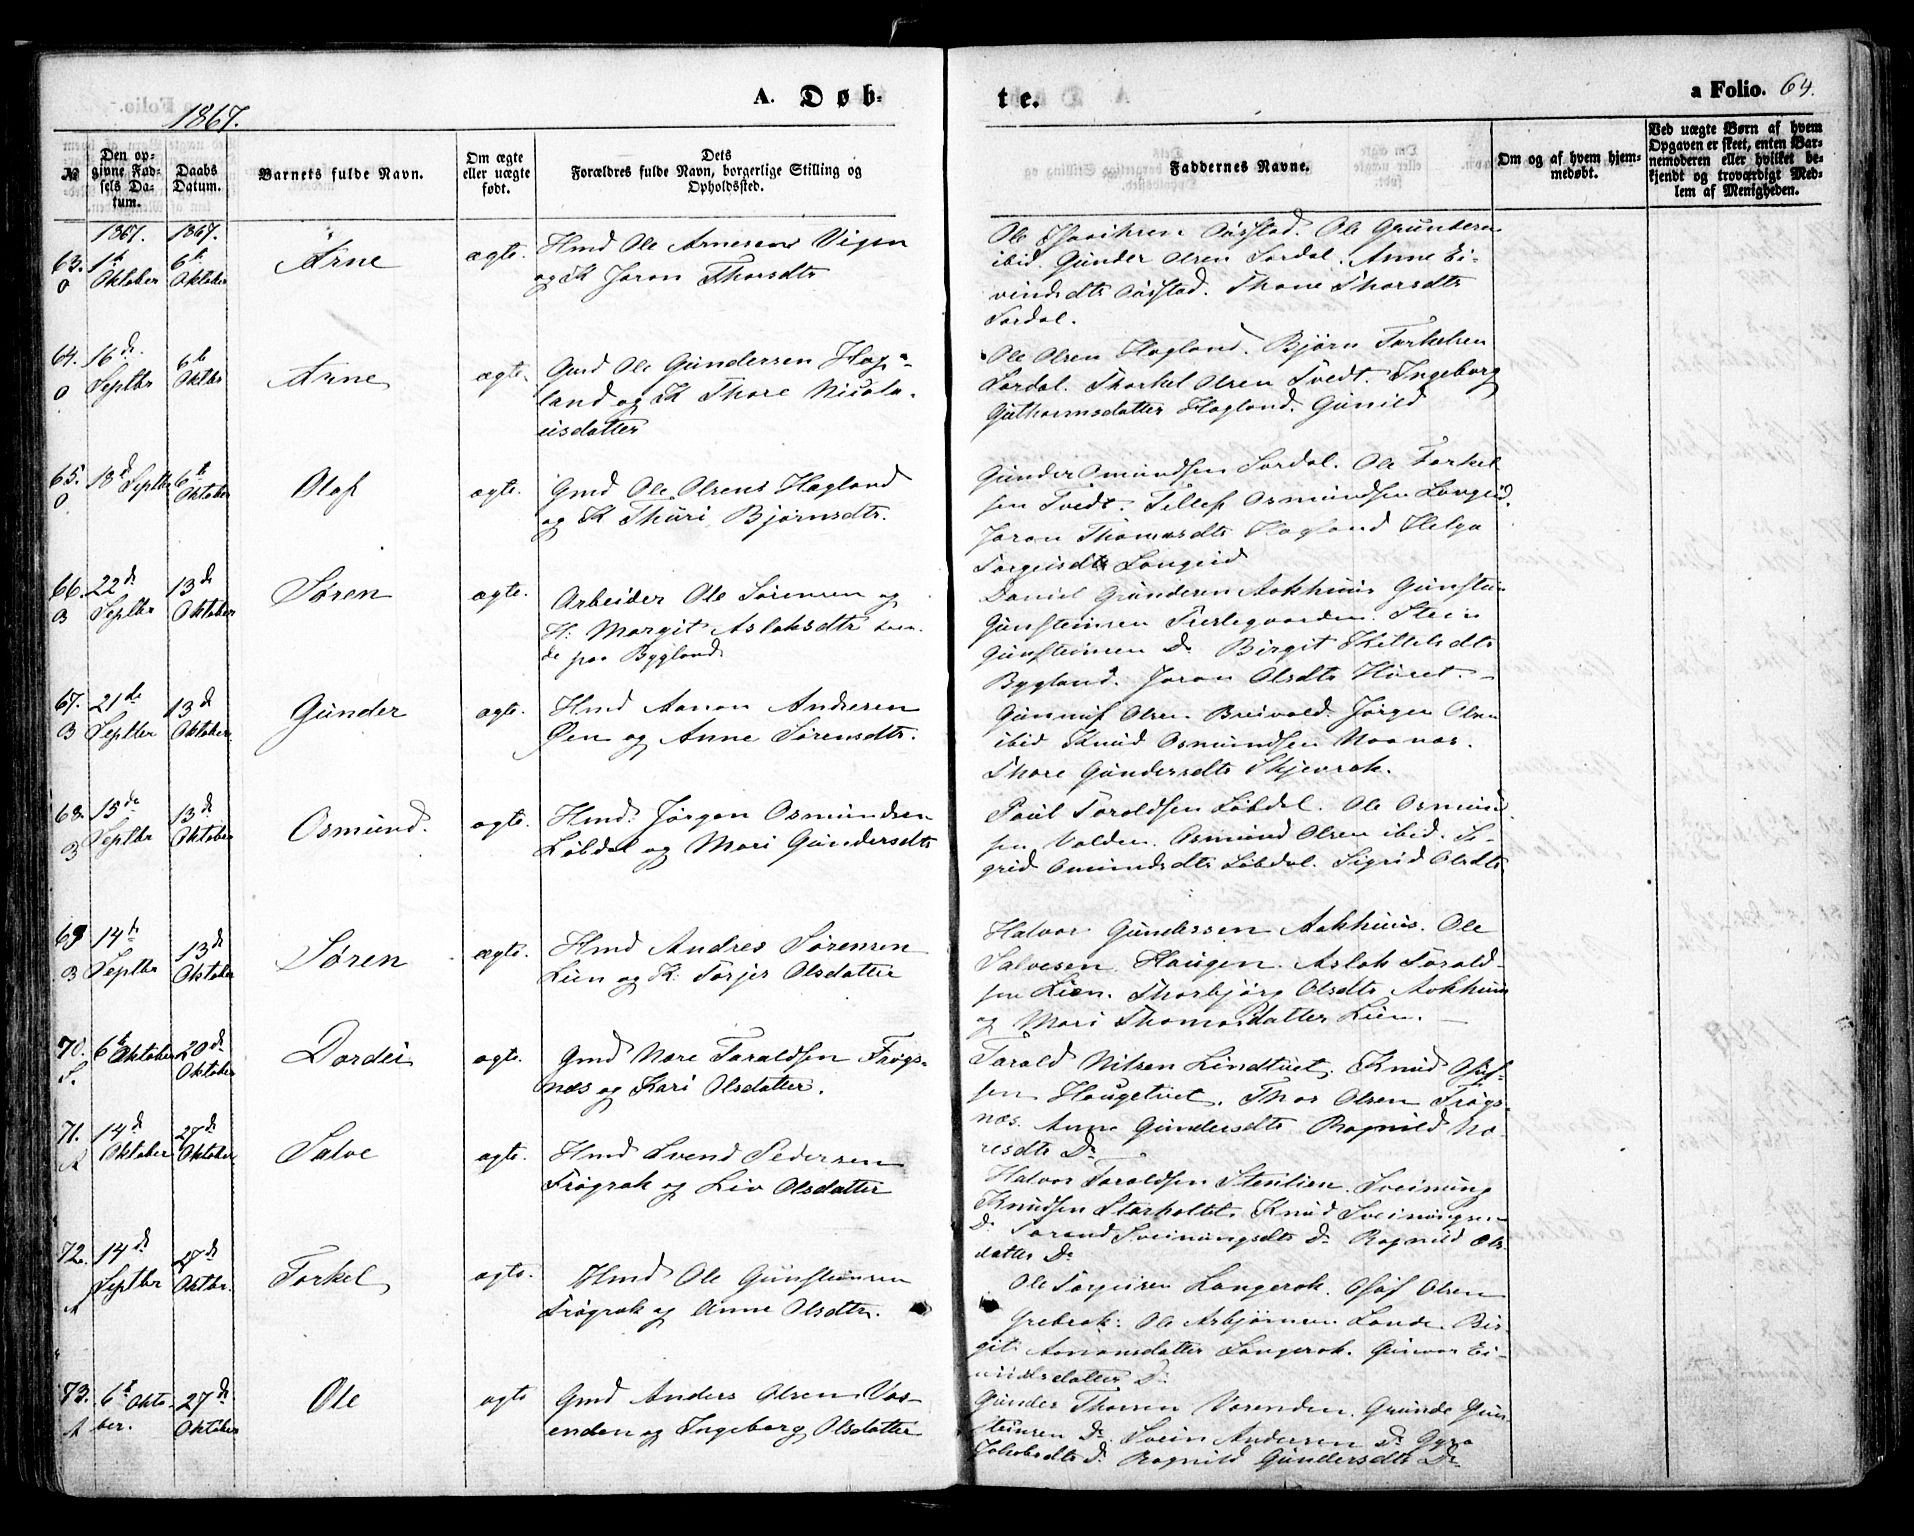 1867.
A. Døb-
te.
a Folio. 64.
№
Den op-
givne Fød-
sels Da-
tum.
Daabs
Datum.
Barnets fulde Navn.
Om ægte
eller uægte
født.
Dets
Forældres fulde Navn, borgerlige Stilling og
Opholdssted.
Faddernes Navne.
Om og af hvem hjem-
medøbt.
Ved uægte Børn af hvem
Opgaven er skeet, enten Bar-
nemoderen eller hvilket be-
kjendt og troværdigt Med-
lem af Menigheden.
1867. 1867.
63. 1ste Oktober 6te Oktober
O
Arne
ægte.
Hmd Ole Arnesen Vigen
og K Joron Thorsdtr
Ole Olsen Gundersen
ibid. Gunder Olsen Sordal. Anne Ei-
vindsdtr Thone Thorsdtr
Sordal.
64. 16de Septbr 6te Oktbr
O
Arne
ægte.
Gmd Ole Gundersen Hag-
land og K Thore Nicola-
eisdatter
Ole Olsen Hagland. Bjørn Torkelsen
Sordal. Thorkel Olsen Tvedt. Ingeborg
Guthormsdatter Hagland. Gunild
65. 18de Septbr 6te Oktober
O
Olaf
ægte.
Gmd Ole Olsens Hagland
og K Thuri Bjørnsdtr.
Gunder Omundsen Sordal. Ole Torkel-
sen Tvedt. Tellef Osmundsen Longeid.
Joron Thomasdtr Hagland Helga
Torgeisdtr Longeid
66. 22de Septbr 13de Oktober
B
Søren
ægte.
Arbeider Ole Sørensen og
H: Margit Aslaksdtr boen-
de paa Bygland.
Daniel Gundersen Aakhuus Gunstein
Gunsteinsen Stein
Gunsteinsen Do Birgit Kittelsdtr
Bygland. Joron Olsdtr Høret. –
67. 21de Septbr 13de Oktober
B
Gunder
ægte.
Hmd Aanon Andersen
Øen og Anne Sørensdtr.
Gunnuf Olsen Breivold. Jørgen Olsen
ibid Knud Osmundsen
Thore Gundersdtr Skjevrak.
68. 15de Septbr 13de Oktober
B
Osmund.
ægte.
Hmd: Jørgen Osmundsen
Løbdal og Mari Gundersdtr
Paul Taroldsen Løbdal. Ole Osmund-
sen Valden. Osmund Olsen ibid. Si-
grid Omundsdtr Løbdal. Sigrid Olsdtr
69 14de Septbr 13de Oktober
B
Søren
ægte.
Hmd Andres Sørensen
Lien og K: Torjer Olsdatter
Halvor Gundersen Aakhuus. Ole
Salvesen Haugen. Aslak Tarald-
sen Lien. Thorbjørg Olsdtr Aakhuus
og Mari Thomasdatter Lien. –
70. 6te Oktober 20de Oktober
S.
Dordei
ægte.
Gmd Nære Taraldsen Frøgs-
næs og Kari Olsdatter.
Tarald Nilsen Lindtvet. Knud Oluf-
sen Haugetvet. Thor Olsen Frøgs-
næs. Anne Gundersdtr Ragnild Næ-
resdtr Do
71. 14de Oktober 27de Oktober
A
Salve
ægte.
Hmd Svend Pedersen
Frøgrak og Liv Olsdatter
Halvor Taraldsen Stenlien. Sveinung
Knudsen Storholtet. Knud Sveinungsen
Do Torand Sveinungsdtr Do Ragnild Ols-
datter Do
72. 14de Septbr 27de Oktbr.
A
Torkel
ægte.
Hmd Ole Gunsteinsen
Frøgrak og Anne Olsdtr.
Ole Torgeirsen Langerak. Oluf Olsen
Grebrok. Ole Asbjørnsen Lande. Bir-
git Aanonsdatter Langerak. Gunvor Ei-
vindsdatter Do
73. 6te Okto-
ber. 27de Oktober
A
Ole
ægte
Gmd Anders Olsen Vas-
enden og Ingeborg Olsdatter
Gunder Thorsen Vasenden. Grunde Gun-
steinsen Do. Svein Andersen Do Gyro
Jakobsdtr Do Ragnild Gundersdtr Do